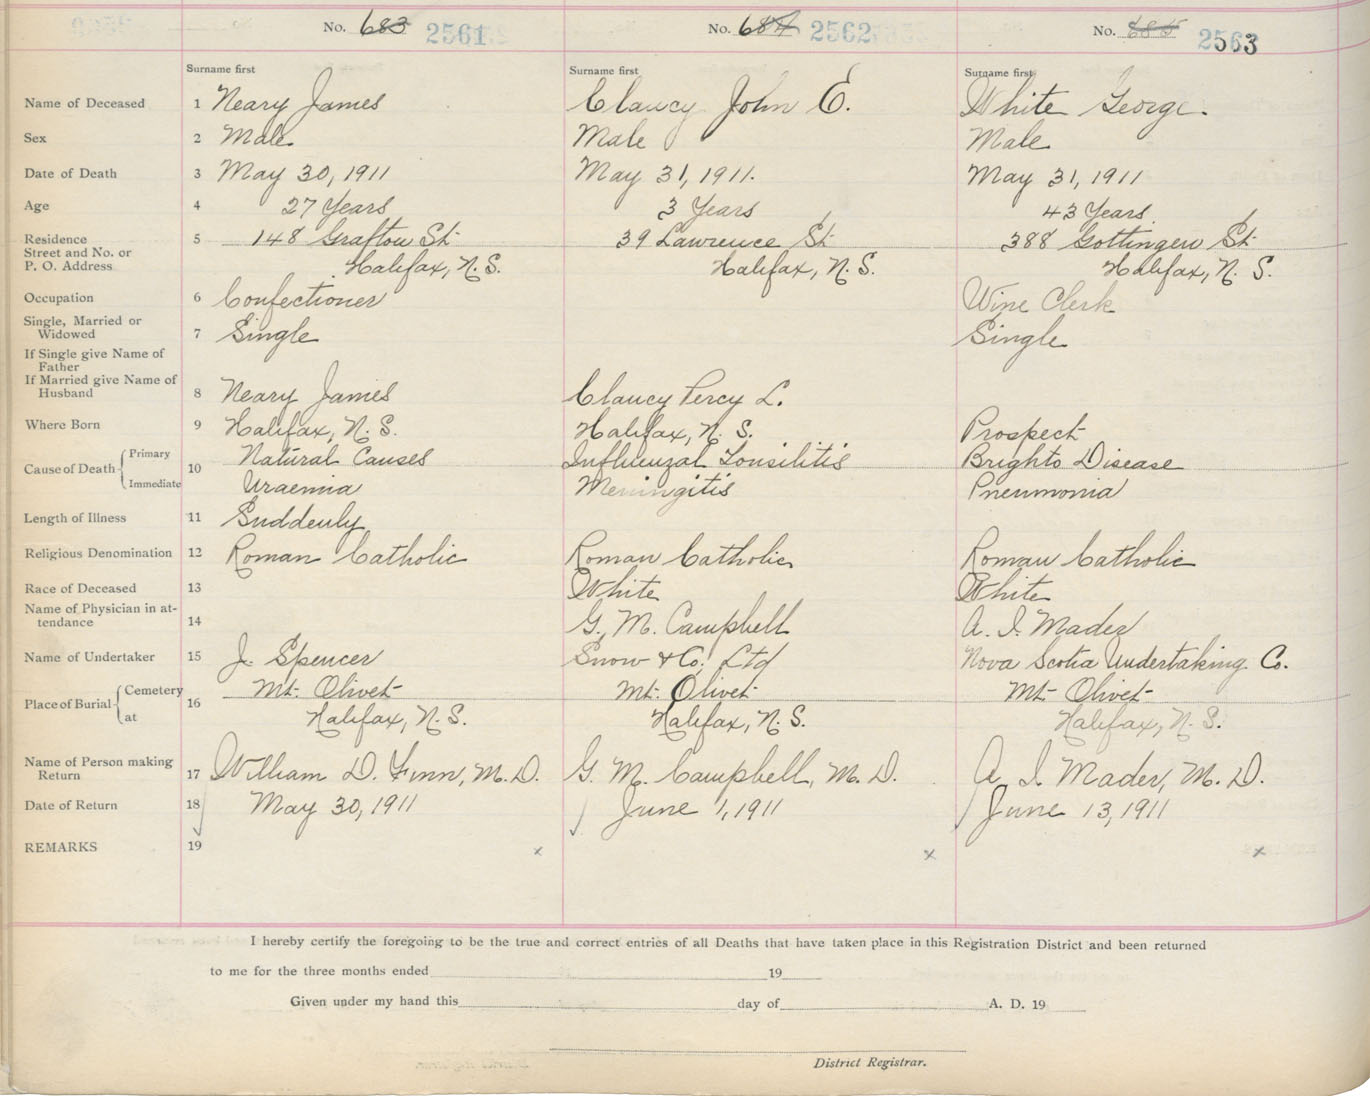 No. 683 2561 No. 684 2562 No. 685 2563
Surname first Surname first Surname first
Name of Deceased 1 Neary James Clancy John E. White George.
Sex 2 Male Male Male
Date of Death 3 May 30, 1911 May 31, 1911. May 31, 1911
Age 4 27 Years 3 Years 43 Years
Residence 5 148 Grafton St 39 Lawrence St 388 Gottingen St
Street and No. or
P. O. Address Halifax, N.S. Halifax, N.S. Halifax, N.S.
Occupation 6 Confectioner Wine Clerk
Single, Married or
Widowed 7 Single Single
If Single give Name of
Father
If Married give Name of
Husband 8 Neary James Clancy Percy L.
Where Born 9 Halifax, N.S. Halifax, N.S. Prospect
Cause of Death Primary 10 Natural Causes Influenzal Tonsilitis Brights Disease
Immediate Uraemia Meningitis Pneumonia
Length of Illness 11 Suddenly
Religious Denomination 12 Roman Catholic Roman Catholic Roman Catholic
Race of Deceased 13 White White
Name of Physician in at-
tendance 14 G. M. Campbell A. I. Mader
Name of Undertaker 15 J. Spencer Snow & Co. Ltd Nova Scotia Undertaking Co.
Place of Burial Cemetery 16 Mt. Olivet Mt. Olivet Mt Olivet
at Halifax, N.S. Halifax, N.S. Halifax, N.S.
Name of Person making
Return 17 William D. Finn, M.D. G. M. Campbell, M.D. A. I. Mader, M.D.
Date of Return 18 May 30, 1911 June 1, 1911 June 13, 1911
REMARKS 19 x x x
I hereby certify the foregoing to be the true and correct entries of all Deaths that have taken place in this Registration District and been returned
to me for the three months ended 19
Given under my hand this day of A. D. 19
District Registrar.